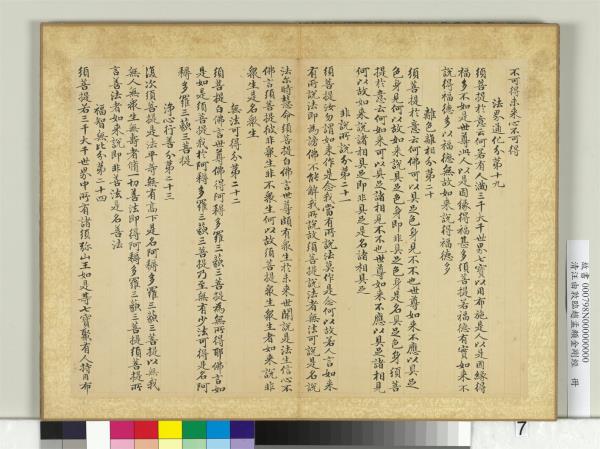 不可得未來心不可得
法界通化分第十九
須菩提於意云何若有人滿三千大千世界七寶以用布施是人以是因緣得
福多不如是世尊此人以是因緣得福甚多須菩提若福德有實如來不
說得福德多以福德無故如來說得福德多
離色離相分第二十
須菩提於意云何佛可以具足色身見不不也世尊如來不應以具足
色身見何以故如來說具足色身即非具足色身是名具足色身須菩
提於意云何如來可以具足諸相見不不也世尊如來不應以具足諸相見
何以故如來說諸相具足即非具足是名諸相具足
非說所說分第二十一
須菩提汝勿謂如來作是念我當有所說法莫作是念何以故若人言如來
有所說法即為謗佛不能解我所說故須菩提說法者無法可說是名說
法尔時慧命須菩提白佛言世尊頗有眾生於未來世聞說是法生信心不
佛言須菩提彼非眾生非不眾生何以故須菩提眾生眾生者如來說非
眾生是名眾生
無法可得分第二十二
須菩提白佛言世尊佛得阿耨多羅三藐三菩提為無所得耶佛言如
是如是須菩提我於阿耨多羅三藐三菩提乃至無有少法可得是名阿
耨多羅三藐三菩提
淨心行善分第二十三
復次須菩提是法平等無有高下是名阿耨多羅三藐三菩提以無我
無人無眾生無壽者脩一切善法即得阿耨多羅三藐三菩提須菩提所
言善法者如來說即非善法是名善法
福智無比分第二十四
須菩提若三千大千世界中所有諸須彌山王如是等七寶聚有人持用布
故書 000798N000000000
清汪由敦臨趙孟頫金剛經 冊
7